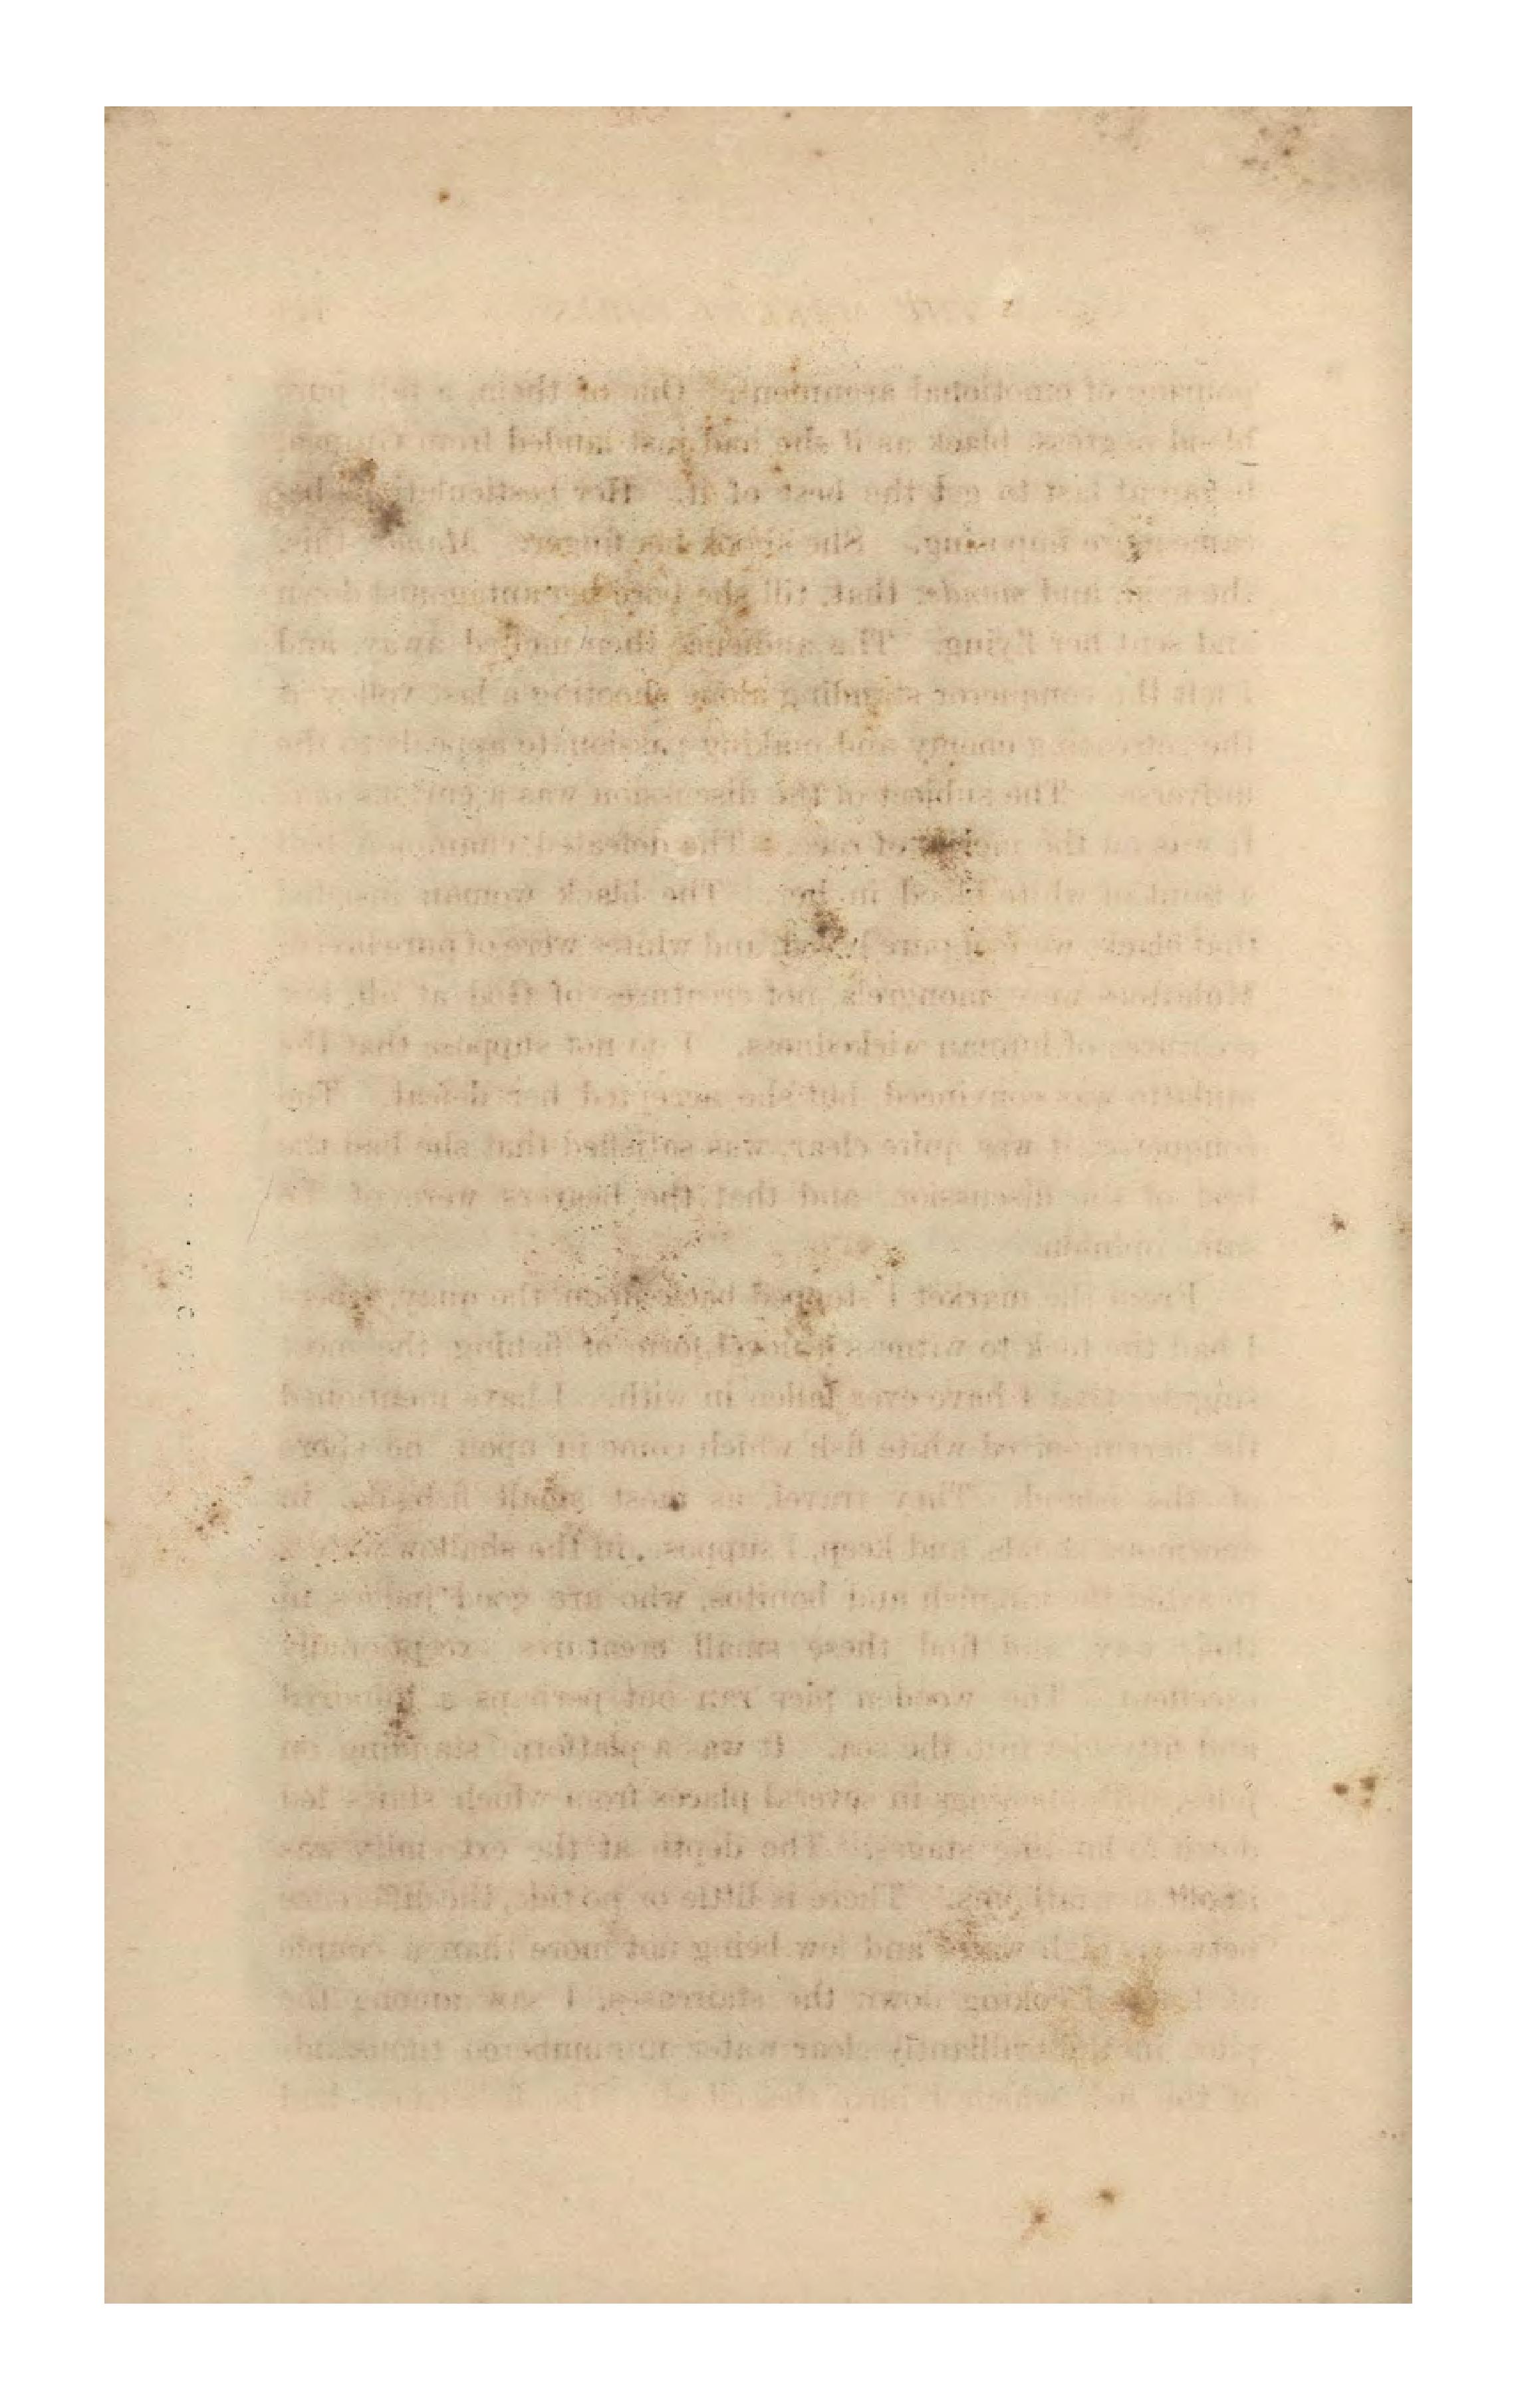 of emotional argument. One of them, a full pure
black as if she had just landed from
began at last to get the best of it. Her gesticulations be-
came more imposing. She shook her finger. Mandez this,
she said, and mandez that, till she bore her antagonist down
and sent her flying. The audience then melted away, and
I left the conqueror standing alone shooting a last volley at
the retreating enemy and making passionate appeals to the
universe. The subject of the discussion was a curious one.
It was on the merits of race. The defeated champion had
a taint of white blood in her. The black woman insisted
that blacks were of pure breed, and whites were of pure breed.
Mulattoes were mongrels, not creatures of God at all, but
creatures of human wickedness. I do not suppose that the
mulatto was convinced, but she accepted her defeat. The
conqueror, it was quite clear, was satisfied that she had the
best of the discussion, and that the hearers were of the
same opinion.
From the market I stepped back upon the quay, where
I had the luck to witness a novel form of fishing, the most
singular that I have ever fallen in with. I have mentioned
the herring-sized white fish which come in upon the shore
of the island. They travel, as most small fish do, in
enormous shoals, and keep, I suppose, in the shallow waters
to avoid the kingfish and bonitos, who are good judges in
their way, and find these small creatures exceptionally
excellent. The wooden pier ran out perhaps a hundred
and fifty feet into the sea. It was a platform standing on
piles, with openings in several places from which stairs led
down to landing stages. The depth at the extremity was
about five fathoms. There is little or no tide, the difference
between high water and low being not more than a couple
of feet. Looking down the staircases, I saw among the
piles in the brilliantly clear water unnumbered thousands
of the fish which I have described. The fishermen had